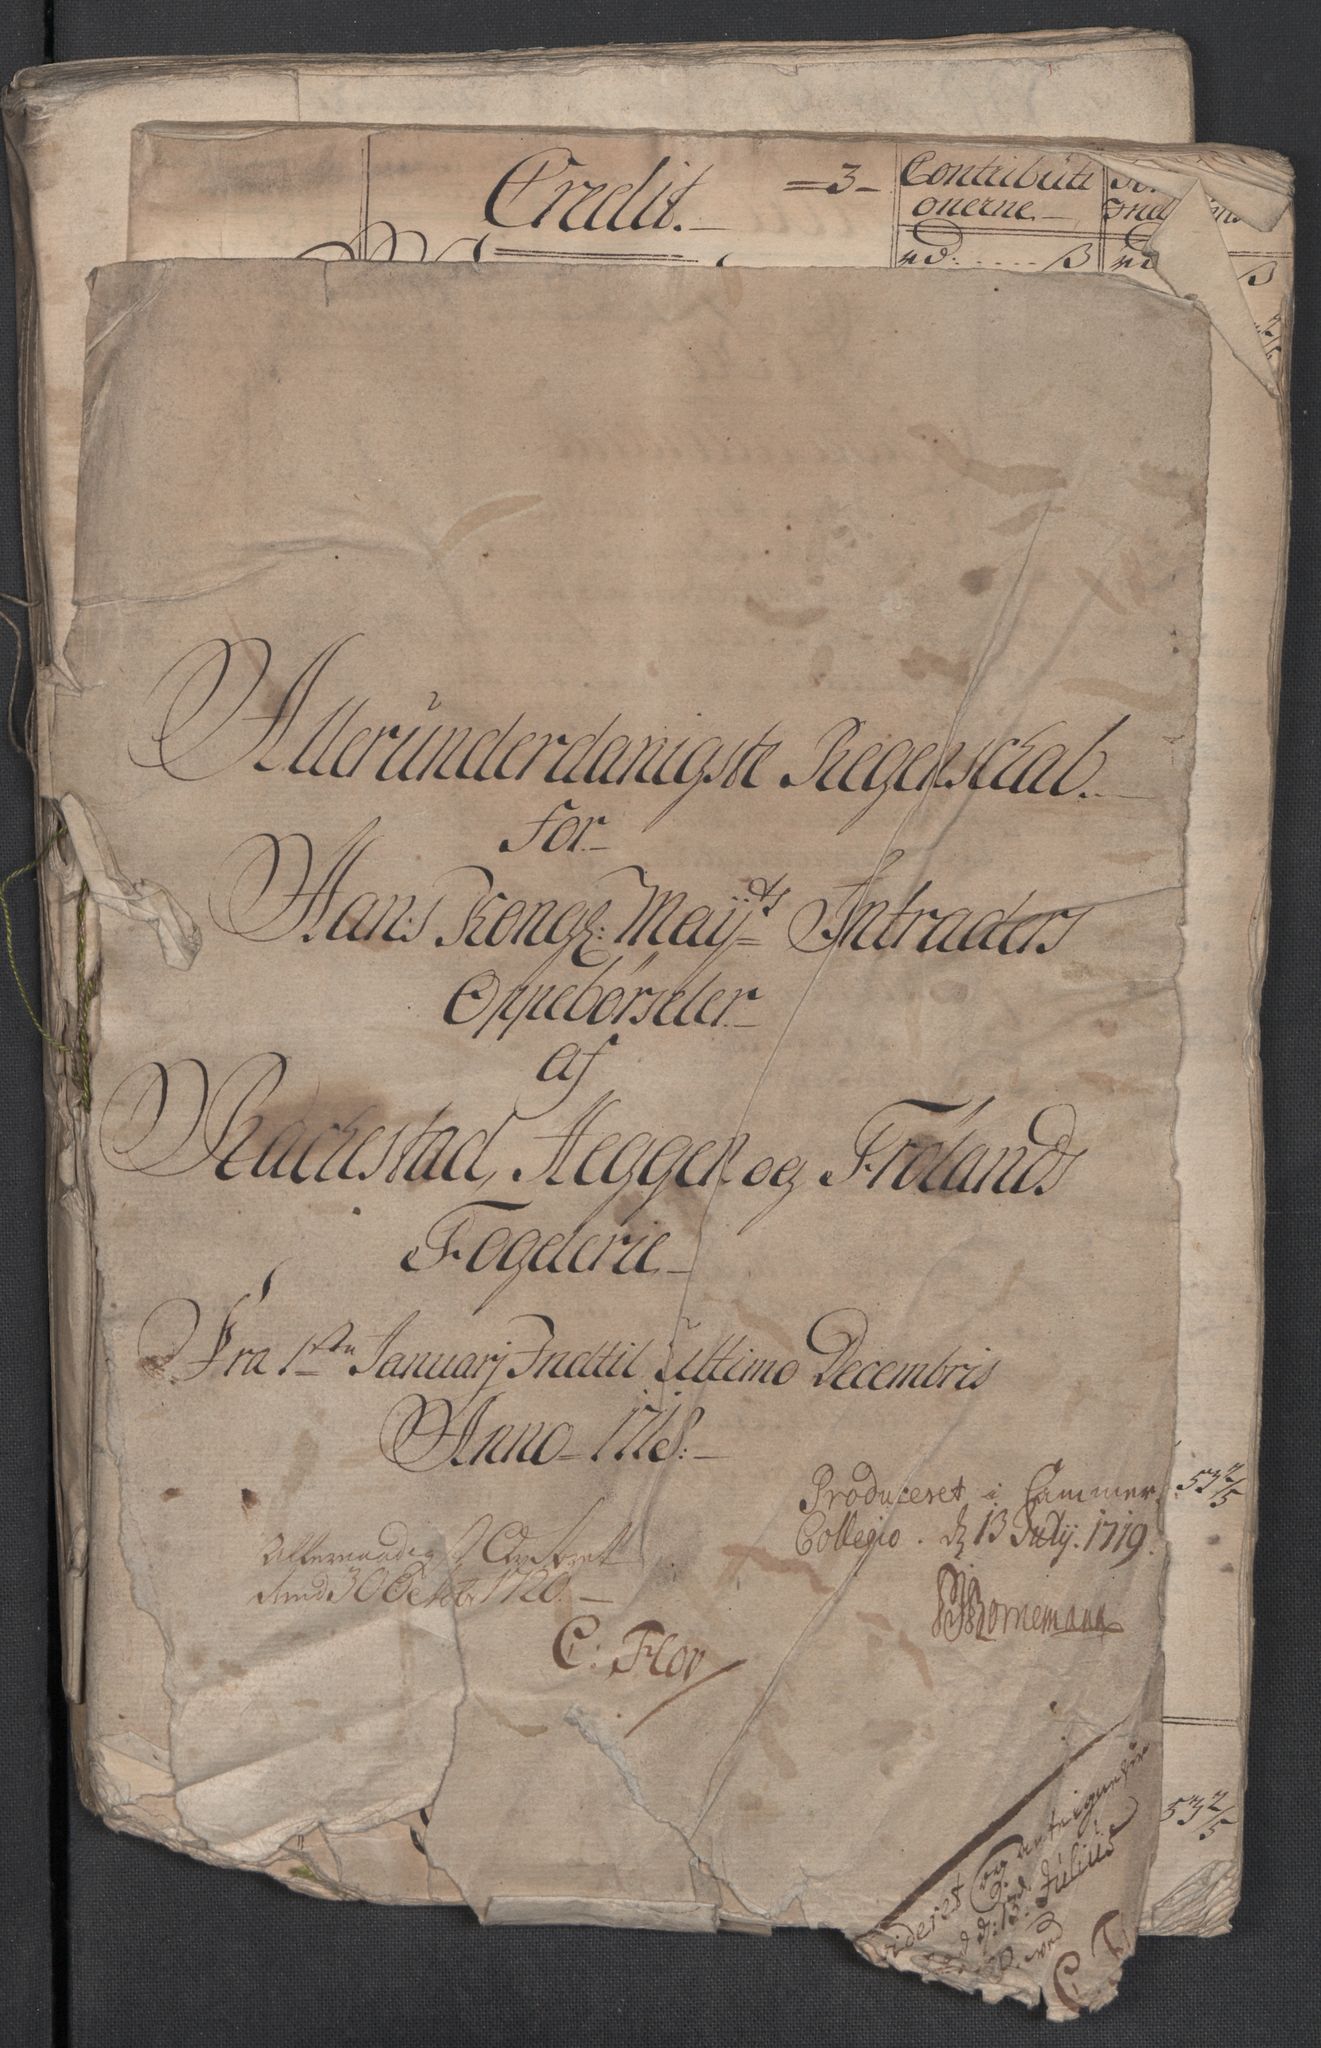 Credit. =3=
Contributi
onerne.
rd: ..... β
Alleründerdanigste Regenschab.
for
Hans Kongl: Maÿts Intraders
Oppebørseler
af
Rackestad, Hegger og Frølands
Fogderie
Fra 1ste Januarj Indtil ultimo Decembris
Anno 1718.
Produceret i Cammer
Collegio. d 13 Julij. 1719.
Bornemann
53 2/5
30 Octobr 1720.
C: Flor
53 2/5
videret og antegnelser
d: 13 Julius